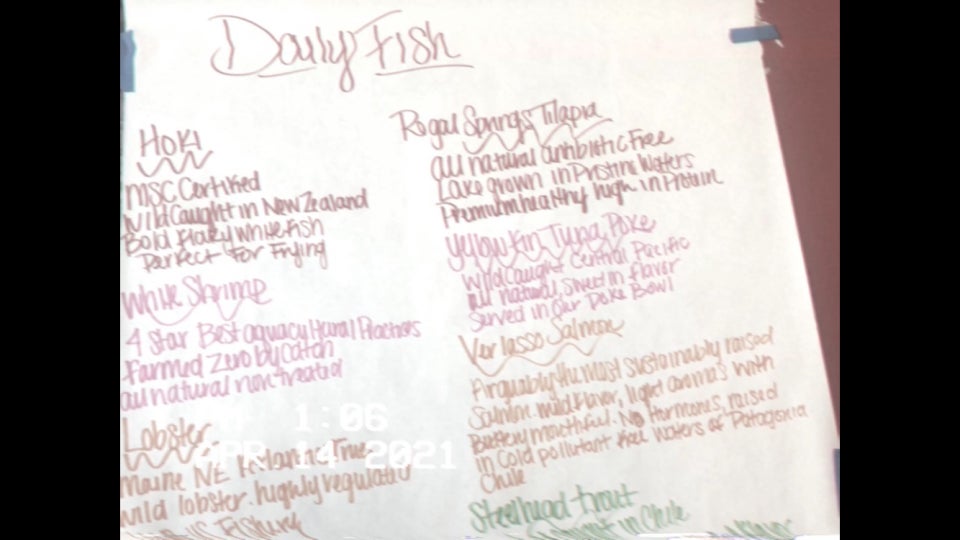 Daily Fish
HOKI
MSC Certified
Wild Caught in New Zealand
Bold flaky white fish
Perfect For Frying
White Shrimp
4 star Best aquacultural Practices
Farmed Zero by catch
all natural non treated
Lobster
Maine NE Atlantic True
wild lobster. highly regulated
Fishery
Regal Springs Tilapia
all natural antibiotic Free
Lake grown in Pristine Waters
Premium healthy high in Protein
Yellowfin Tuna Poke
Wild Caught Central Pacific
all natural, sweet in flavor
Served in Our Poke Bowl
Verlasso Salmon
Arguably the most sustainably raised
Salmon. mild flavor, light aroma's with
Buttery mouthful. No Hormones, raised
in Cold pollutant free waters of Patagonia
Chile
Steelhead trout
in Chile
1:06
APR 14 2021